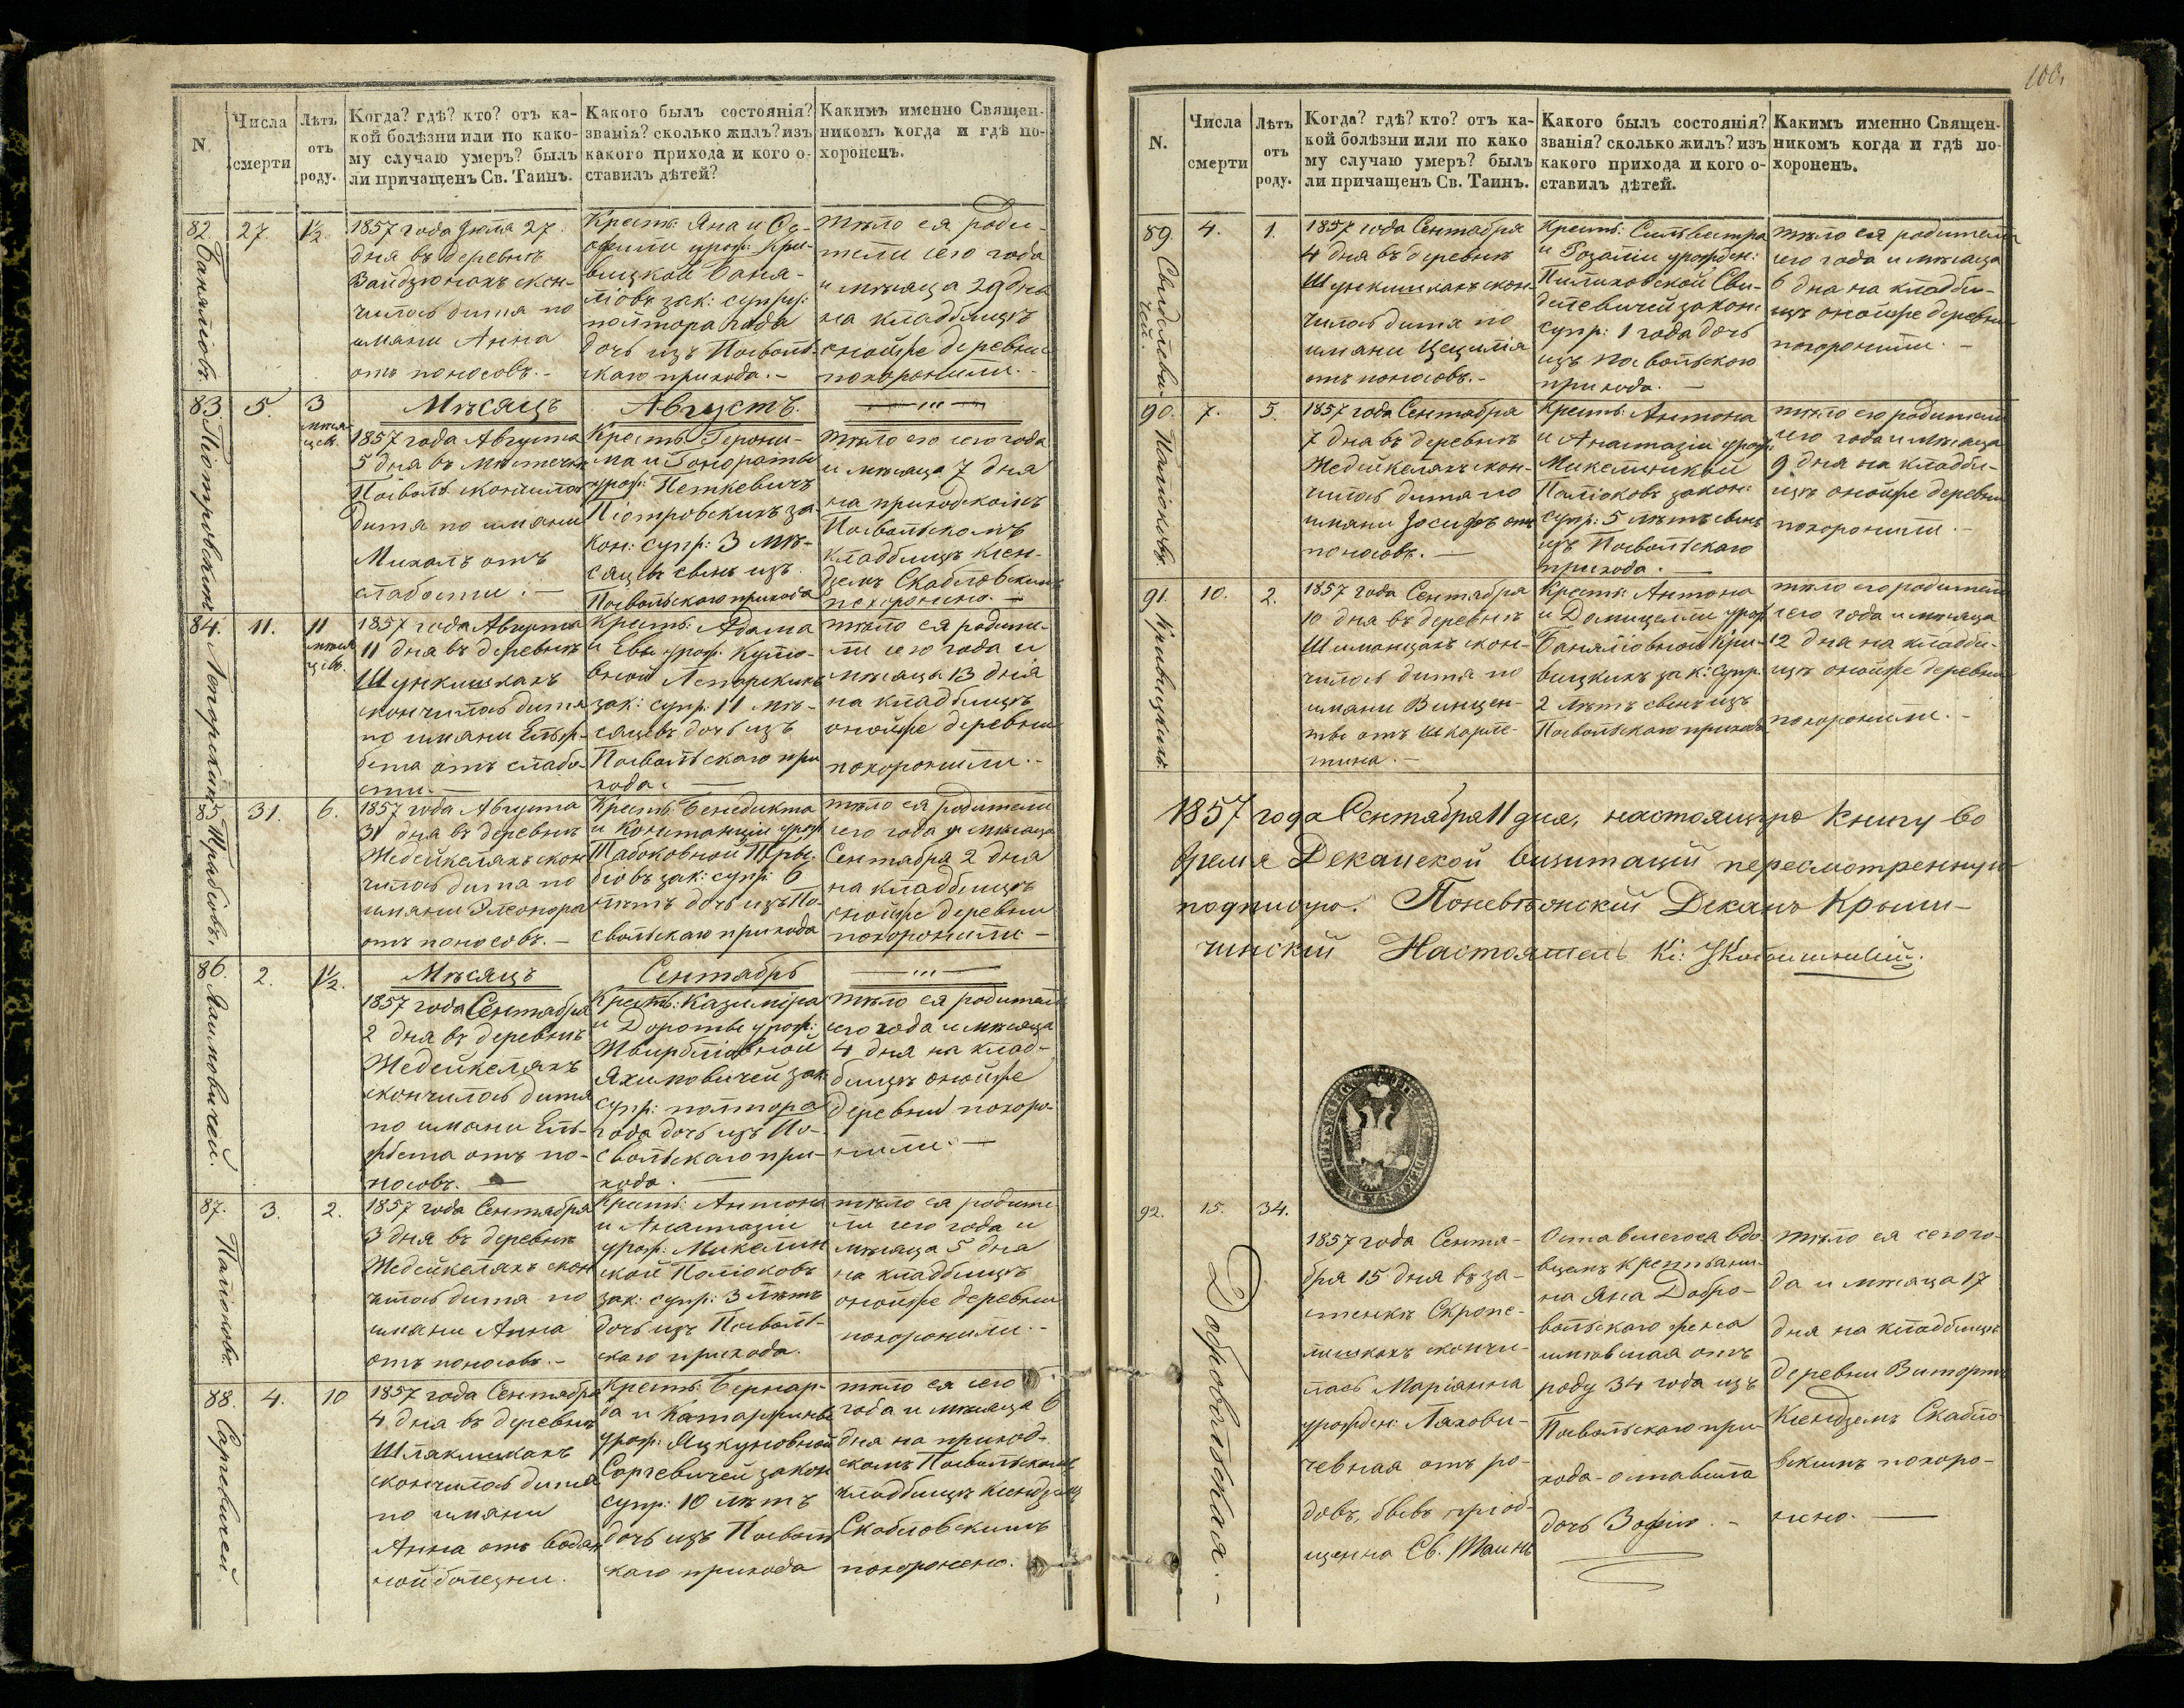 N
Числа смерти
Лѣтъ отъ роду.
Когда? гдѣ? кто? отъ ка-
кой болѣзни или по како-
му случаю умеръ? былъ
ли причащенъ Св. Таинъ.
Какого былъ состоянія?
званія? сколько жилъ? изъ
какого прихода и кого о-
ставилъ дѣтей?
Какимъ именно Священ-
никомъ когда и гдѣ по-
хороненъ.
82.
27.
1½.
1857 года Іюля 27
дня въ деревнѣ
скон-
чилась дитя по
имяни Анна
отъ поносовъ. -
Крест: Яна и
урож: Кри-
вицкой Баня-
ліовъ зак: супр:
полтора года
дочь изъ Посволь-
скаго прихода. -
тѣло ея роди-
тели сего года
и мѣсяца 29 дня
на кладбищѣ
онойже деревни
похоронили. -
83. Піотровскихъ
5.
3
мѣся-
цев.
Мѣсяцъ
Августъ.
1857 года Августа
5 дня въ мѣстечкѣ
Посволь скончилось
дитя по имяни
Михалъ отъ
слабости. -
Крест: Герони-
ма и Гонораты
урож: Петкевичъ
Піотровскихъ за-
кон: супр: 3 мѣ-
сяцевъ сынъ изъ
Посвольскаго прихода
тѣло его сего года
и мѣсяца 7 дня
на приходскомъ
Посвольскомъ
кладбищѣ ксен-
дземъ Скабловскимъ
похоронено. -
84.
11.
11
мѣся
цев.
1857 года Августа
11 дня въ деревнѣ
Шункишкахъ
скончилась дитя
по имяни Ельж-
бета отъ слабо-
сти.
Крест: Адама
и Евы урож:
зак: супр: 11 мѣ-
сяцевъ дочь изъ
Посвольскаго при
хода.
тѣло ея родите-
ли сего года и
мѣсяца 13 дня
на кладбищѣ
онойже деревни
похоронили. -
85.
31.
6.
1857 года Августа
31 дня въ деревнѣ
Жедейкеляхъ скон
чилась дитя по
имяни Элеонора
отъ поносовъ. -
Крест: Бенедикта
и Констанціи урож
зак: супр: 6
лѣтъ дочь изъ По-
свольскаго прихода
тѣло ея родители
сего года и мѣсяца
Сентября 2 дня
на кладбищѣ
онойже деревни
похоронили -
86.
2.
1½.
Мѣсяцъ
Сентябрь
1857 года Сентября
2 дня въ деревнѣ
Жедейкеляхъ
скончилась дитя
по имяни Ель-
жбета отъ по-
носовъ. -
Крест: Казиміра
и Доротѣ урож:
Жвирбліовной
Яхимовичей зак:
супр: полтора
года дочь изъ По-
свольскаго при-
хода. -
тѣло ея родители
сего года и мѣсяца
4 дня на клад-
бищѣ онойже
деревни похоро-
нили. -
87. Паліоковъ.
3.
2.
1857 года Сентября
3 дня въ деревнѣ
Жедейкеляхъ скон
чилась дитя по
имяни Анна
отъ поносовъ. -
Крест: Антона
и Анастазіи
урож: Микелин
ской Паліоковъ
зак: супр: 3 лѣтъ
дочь изъ Посволь-
скаго прихода.
тѣло ея родите
ли сего года и
мѣсяца 5 дня
на кладбищѣ
онойже деревни
похоронили. -
88. Саргевичей
4.
10
1857 года Сентября
4 дня въ деревнѣ
Шляклишкахъ
скончилась дитя
по имяни
Анна отъ водян
ной болезни.
Крест: Бернар-
да и Катаржины
урож: Яцкуновной
Саргевичей закон
супр: 10 лѣтъ
дочь изъ Посволь
скаго прихода
тѣло ея сего
года и мѣсяца 6
дня на приход-
скомъ Посвольскомъ
кладбищѣ ксендзомъ
Скабловскимъ
похоронено.
100.
N.
Числа смерти
Лѣтъ отъ роду.
Когда? гдѣ? кто? отъ ка-
кой болѣзни или по како
му случаю умеръ? былъ
ли причащенъ Св. Таинъ.
Какого былъ состоянія?
званія? сколько жилъ? изъ
какого прихода и кого о-
ставилъ дѣтей.
Какимъ именно Священ-
никомъ когда и гдѣ по-
хороненъ.
89.
4.
1.
1857 года Сентября
4 дня въ деревнѣ
Шункишкахъ скон-
чилась дитя по
имяни Цецилія
отъ поносовъ. -
Крест: Сильвестра
и Розаліи урожден:
Пилиховской Сви-
делевичей закон:
супр: 1 года дочь
изъ Посвольскаго
прихода. -
тѣло ея родители
сего года и мѣсяца
6 дня на кладби-
щѣ онойже деревни
похоронили. -
90. Паліоковъ.
7.
5.
1857 года Сентября
7 дня въ деревнѣ
Жедейкеляхъ скон-
чилась дитя по
имяни Іосифъ отъ
поносовъ. -
Крест: Антона
и Анастазіи урож:
Микелинской
Паліоковъ закон:
супр: 5 лѣтъ сынъ
изъ Посвольскаго
прихода. -
тѣло его родители
сего года и мѣсяца
9 дня на кладби-
щѣ онойже деревни
похоронили. -
91. Кривицкихъ.
10.
2.
1857 года Сентября
10 дня въ деревнѣ
Шиманцахъ скон-
чилась дитя по
имяни Винцен-
ты отъ шкарле-
тина. -
Крест: Антона
и Домицелли урож
Баналіовной Кри-
вицкихъ зак: супр:
2 лѣтъ сынъ изъ
Посвольскаго прихода
тѣло его родители
сего года и мѣсяца
12 дня на кладби-
щѣ онойже деревни
похоронили. -
1857 года Сентября 11 дня, настоящую книгу во
время Деканской визитаціи пересмотренную
подписую. Поневѣжскій Деканъ Крыни-
чинскій Настоятель Кс:
92. Добровольская. -
15.
34.
1857 года Сентя-
бря 15 дня въ за-
стенкѣ Скропе-
лишкахъ скончи-
лась Маріанна
урожден: Ляхови-
чевная отъ ро-
довъ, бывъ пріоб-
щенна Св. Таинъ
Оставшегося вдо-
вцемъ крестьяни-
на Яна Добро-
вольскаго жена
имѣвшая отъ
роду 34 года изъ
Посвольскаго при-
хода - оставила
дочь Зофію. -
тѣло ея сего го-
да и мѣсяца 17
дня на кладбищѣ
деревни
Ксендземъ Скабло-
вскимъ похоро-
нено. -